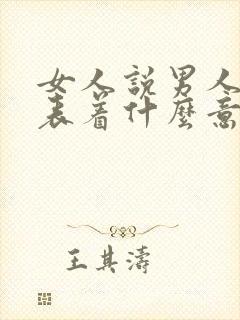 女人說男人
表著什麼意
王其濤